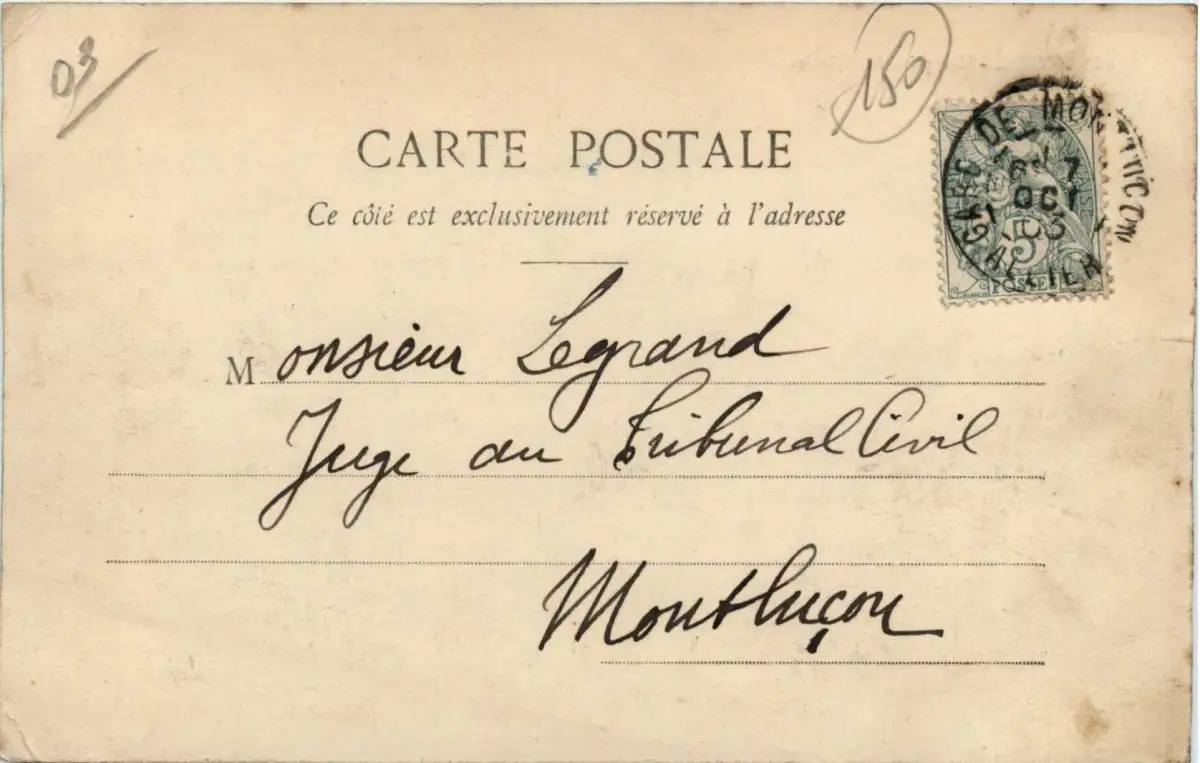 03
150
CARTE POSTALE
Ce côté est exclusivement réservé à l'adresse
GARE DE MONTLUCON
7
OCT
03
ALLIER
5
POSTES
Monsieur Legrand
Juge au Tribunal Civil
Montluçon